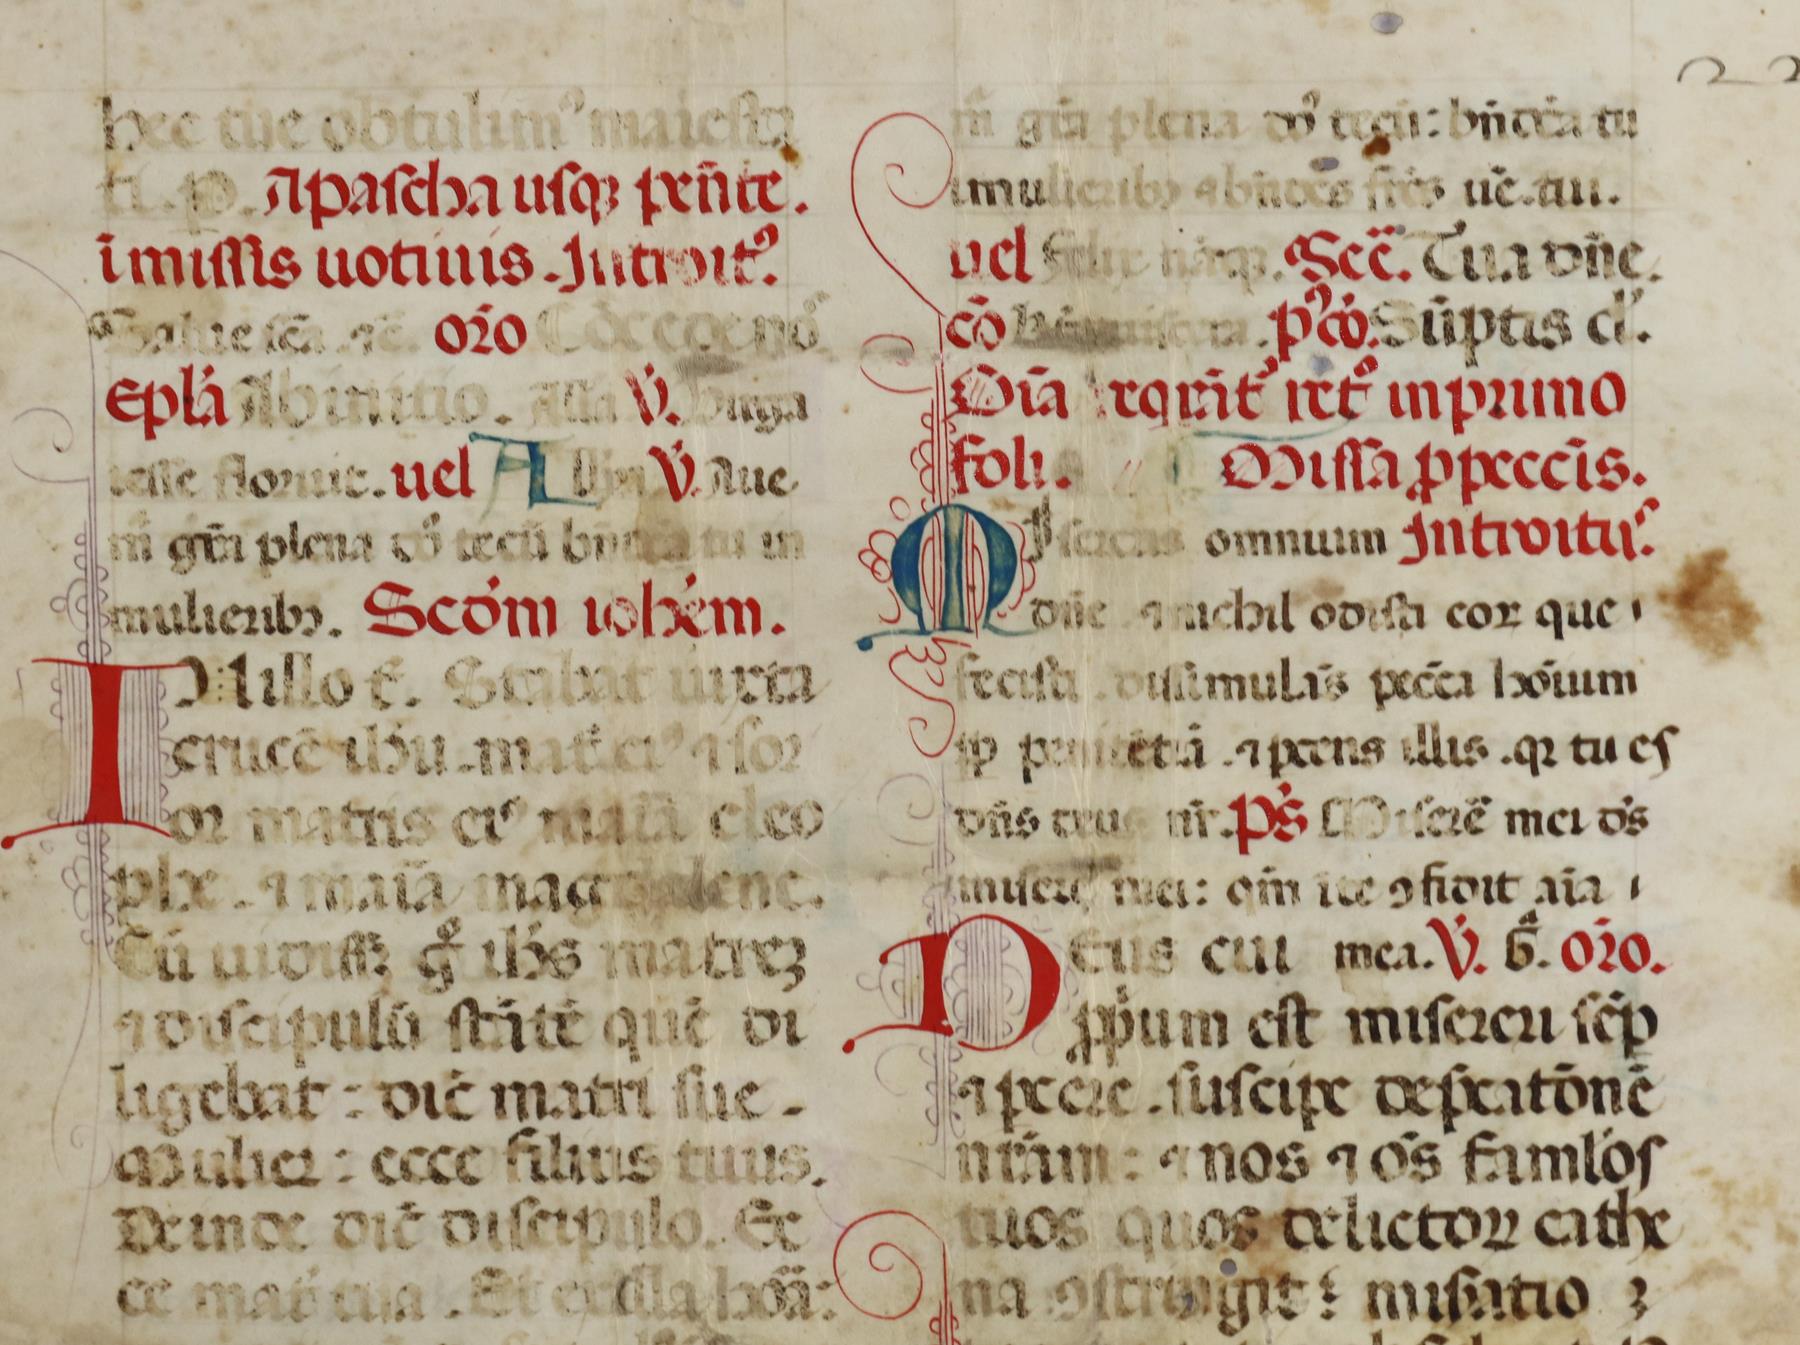 hec tue obtulim᾽ maiesta
ti. p. A pascha usqꝫ pen̄te.
ī missis uotiuis. Introit᾽.
Salue sc̄a ꝛc̄. or̄o Cōcede nō
Ep̄la Ab initio. Alla V̄. Virga
iesse floruit. uel Alla V̄. Aue
m̄ gr̄a plena dn̄s tecū bn̄dicta tu in
mulieribꝫ. Scd̄m ioh̄em.
IN illo t̄. Stabat iuxta
crucē ih̄u. mat̄ ei᾽ ⁊ sor
or matris ei᾽ maīa cleo
phe. ⁊ maīa magdalene.
Cū uidiss; gͦ ih̄s matreꝫ
⁊ discipulū stātē quē di
ligebat: dic̄ matri sue.
Mulier: ecce filius tuus.
Deinde dic̄ discipulo. Ec
ce mat̄ tua. Et ex illa hōa:
m̄ gr̄a plena dn̄s tecū: bn̄dcā tu
ī mulieribꝫ ⁊ bn̄dc̄s fr̄c̄s uē. tui.
uel felix nāqꝫ. Sec̄. Tua dn̄e.
cō p᾽cō. Sūptis d̄.
Oīa reqrūt᾽ ret᾽ in primo
foli. Missa p peccīs.
Misereris omnium Introitus.
dn̄e ⁊ nichil odisti eoꝝ que
fecisti. dissimulās pec̄ca hōium
pp penitētiā. ⁊ parcens illis. qꝛ tu es
dn̄s deus nr̄. Ps̄ Miserē mei ds̄
miserē mei: qm̄ ī te ꝯfidit aīa
Deus cui mea. V̄. G̅. or̄o.
pp̄ium est misereri sēp
⁊ parcere. suscipe dep̄catōnē
nr̄am: ⁊ nos ⁊ os̄ famlos
tuos quos delictoꝝ cathe
na ꝯstringit: miseratio